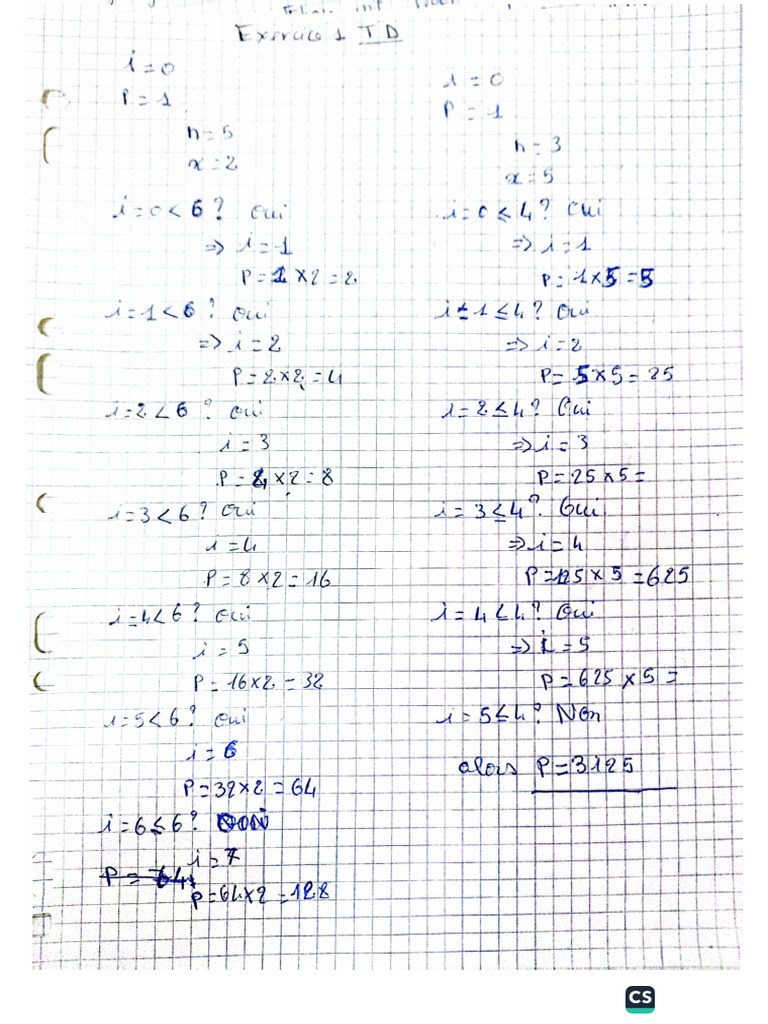 Exercice 1 TD
i = 0
P = 1
n = 5
x = 2
i = 0 < 6 ? Oui
=> i = 1
P = 1 x 2 = 2
i = 1 < 6 ? Oui
=> i = 2
P = 2 x 2 = 4
i = 2 < 6 ? Oui
i = 3
P = 4 x 2 = 8
i = 3 < 6 ? Oui
i = 4
P = 8 x 2 = 16
i = 4 < 6 ? Oui
i = 5
P = 16 x 2 = 32
i = 5 < 6 ? Oui
i = 6
P = 32 x 2 = 64
i = 6 ≤ 6 ? Oui
i = 7
P = 64
P = 64 x 2 = 128
i = 0
P = 1
n = 3
x = 5
i = 0 ≤ 4 ? Oui
=> i = 1
P = 1 x 5 = 5
i = 1 ≤ 4 ? Oui
=> i = 2
P = 5 x 5 = 25
i = 2 ≤ 4 ? Oui
=> i = 3
P = 25 x 5 =
i = 3 ≤ 4 ? Oui
=> i = 4
P = 125 x 5 = 625
i = 4 ≤ 4 ? Oui
=> i = 5
P = 625 x 5 =
i = 5 ≤ 4 ? Non
alors P = 3125
CS